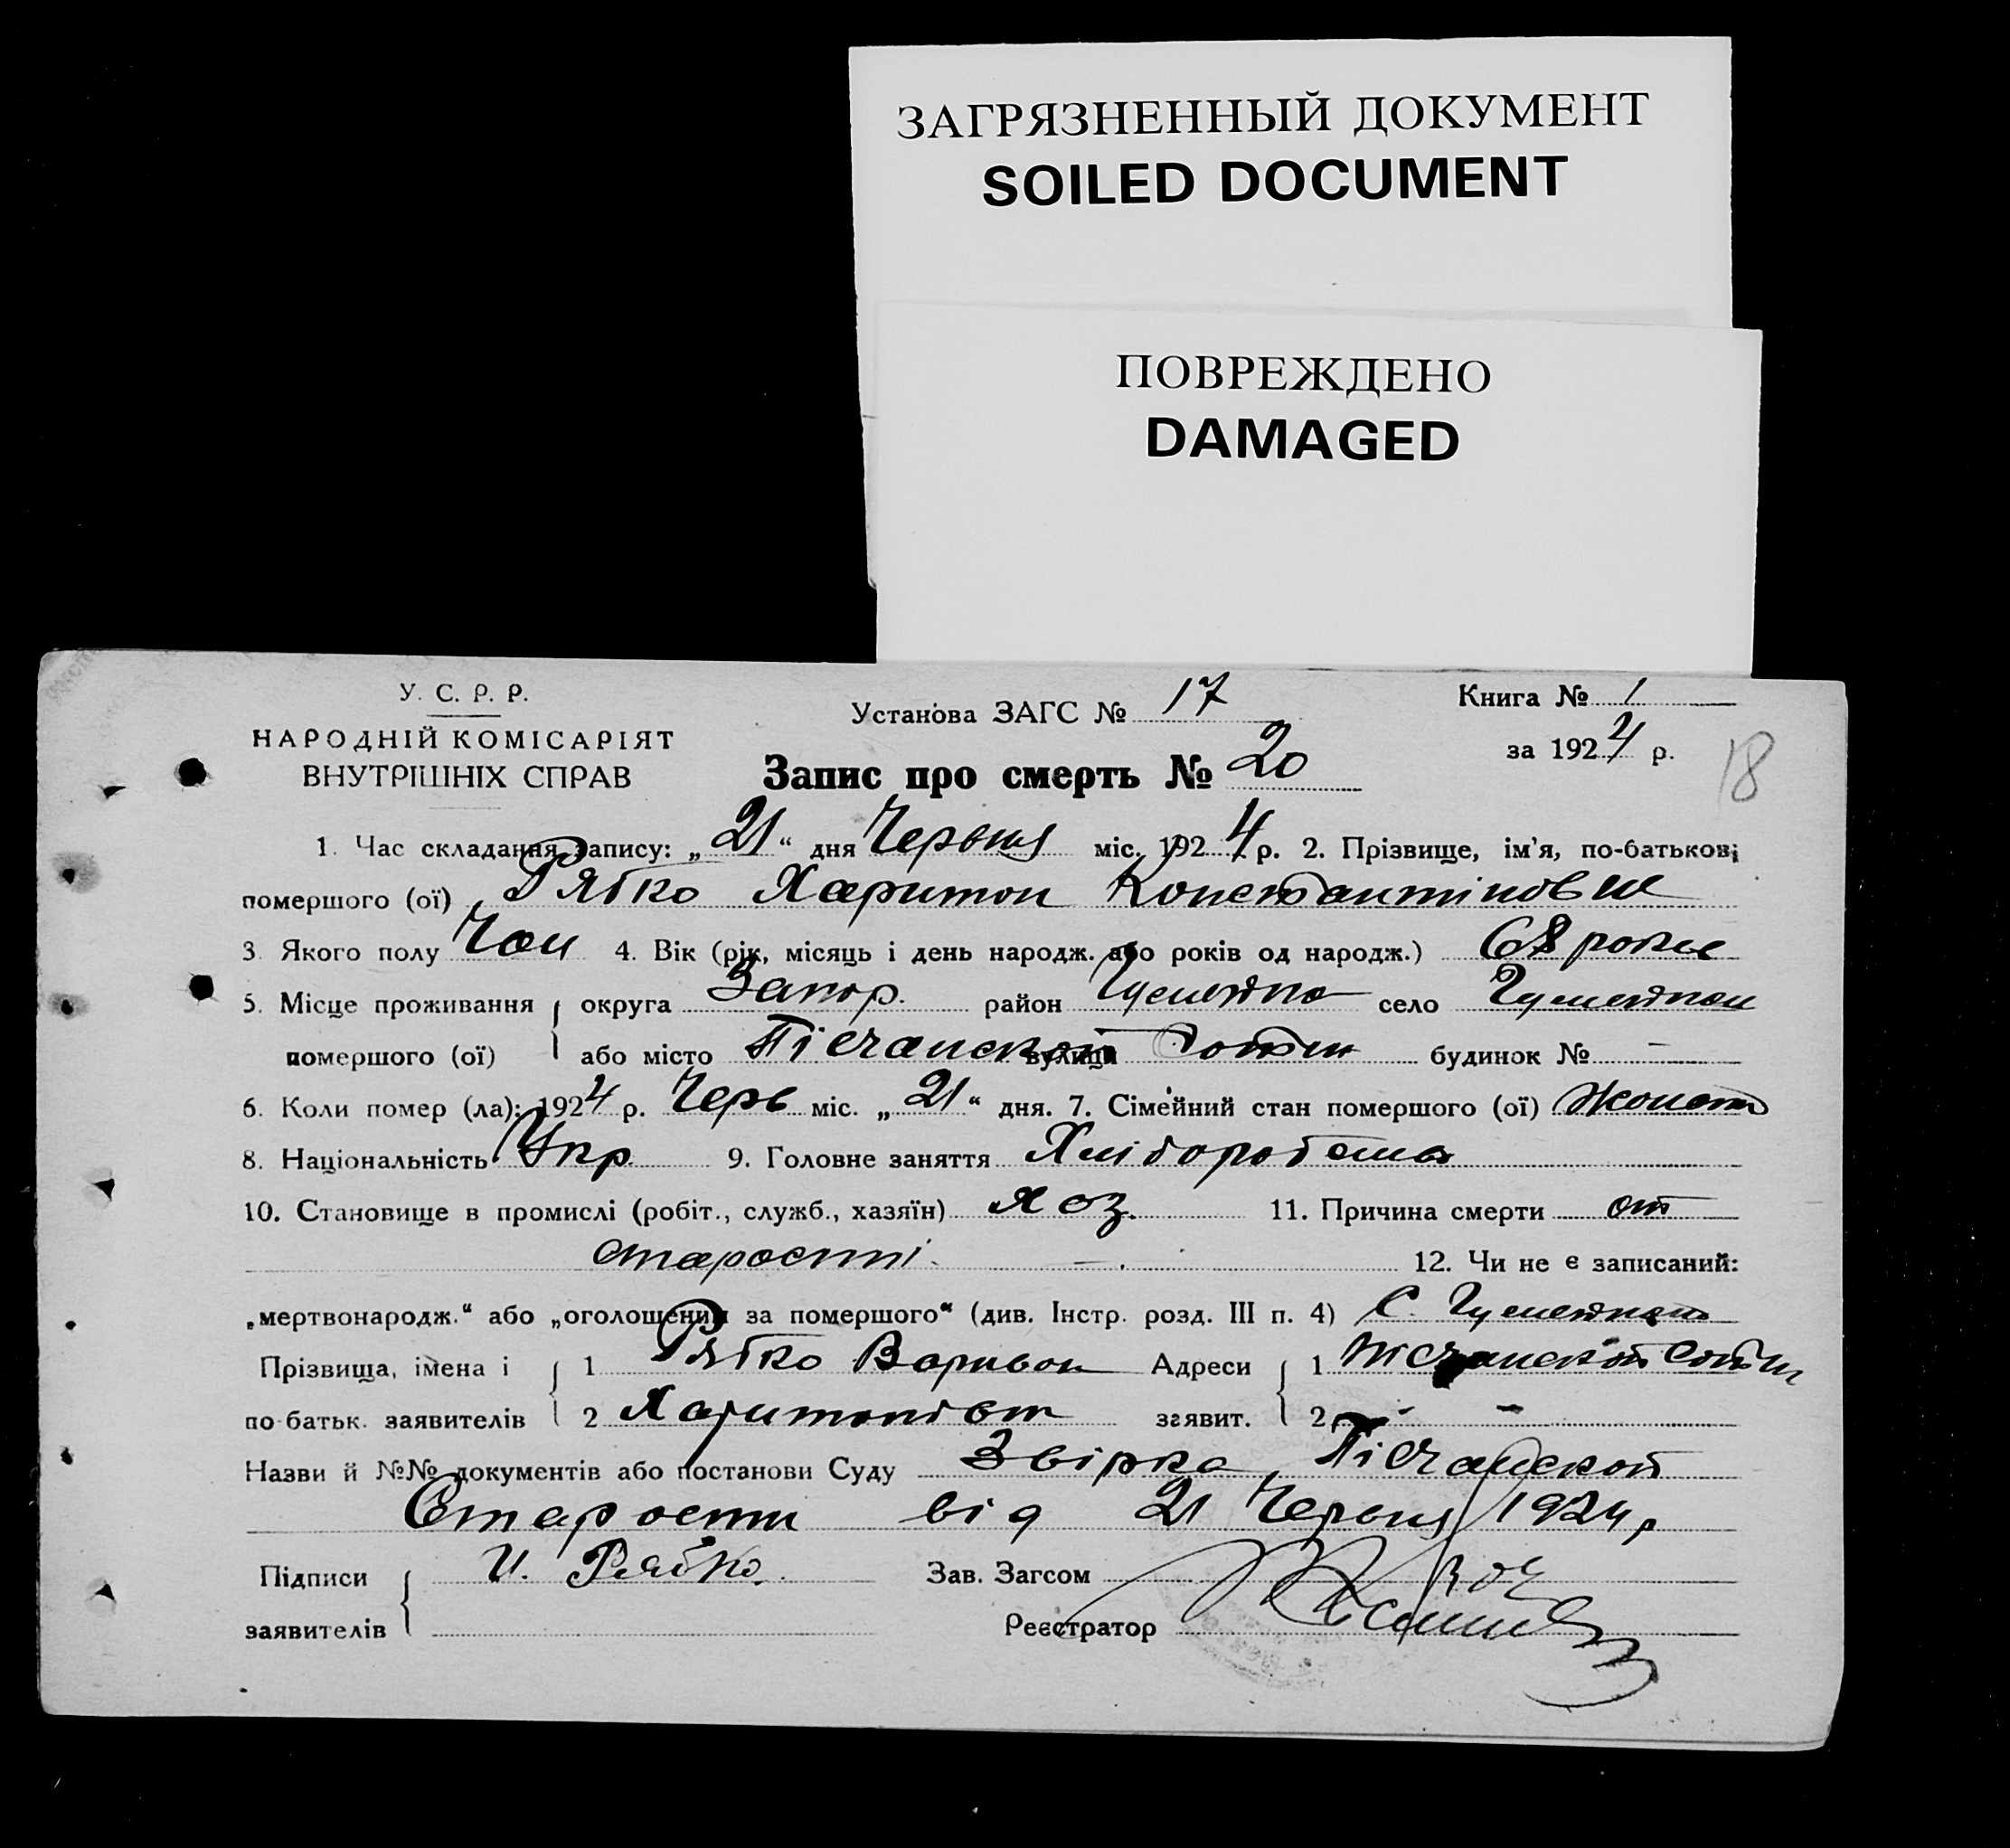 ЗАГРЯЗНЕННЫЙ ДОКУМЕНТ
SOILED DOCUMENT
ПОВРЕЖДЕНО
DAMAGED
У. С. Р. Р.
НАРОДНІЙ КОМІСАРІЯТ
ВНУТРІШНІХ СПРАВ
Установа ЗАГС № 17
Книга № 1
за 1924 р.
18
Запис про смерть № 20
1. Час складання запису: „21“ дня Червня міс. 1924 р. 2. Прізвище, ім'я, по-батькові
помершого (ої) Рябко Харитон Константінов
3. Якого полу Чол 4. Вік (рік, місяць і день народж. або років од народж.) 68
5. Місце проживання помершого (ої) округа Запор. район село
або місто Пісчанской вулиця Сотни будинок № —
6. Коли помер (ла): 1924 р. Черв міс. „21“ дня. 7. Сімейний стан помершого (ої) Жонат
8. Національність Укр. 9. Головне заняття
10. Становище в промислі (робіт., служб., хазяїн) Хоз. 11. Причина смерти от
старости. 12. Чи не є записаний:
„мертвонародж.“ або „оголошений за помершого“ (див. Інстр. розд. III п. 4) С.
Прізвища, імена і по-батьк. заявителів 1 Рябко Адреси заявит. 1 Сотни
2 2 " "
Назви й №№ документів або постанови Суду Звірка Пісчанской
Старости від 21 Червня 1924 р
Підписи заявителів И. Рябко.
Зав. Загсом
Реєстратор